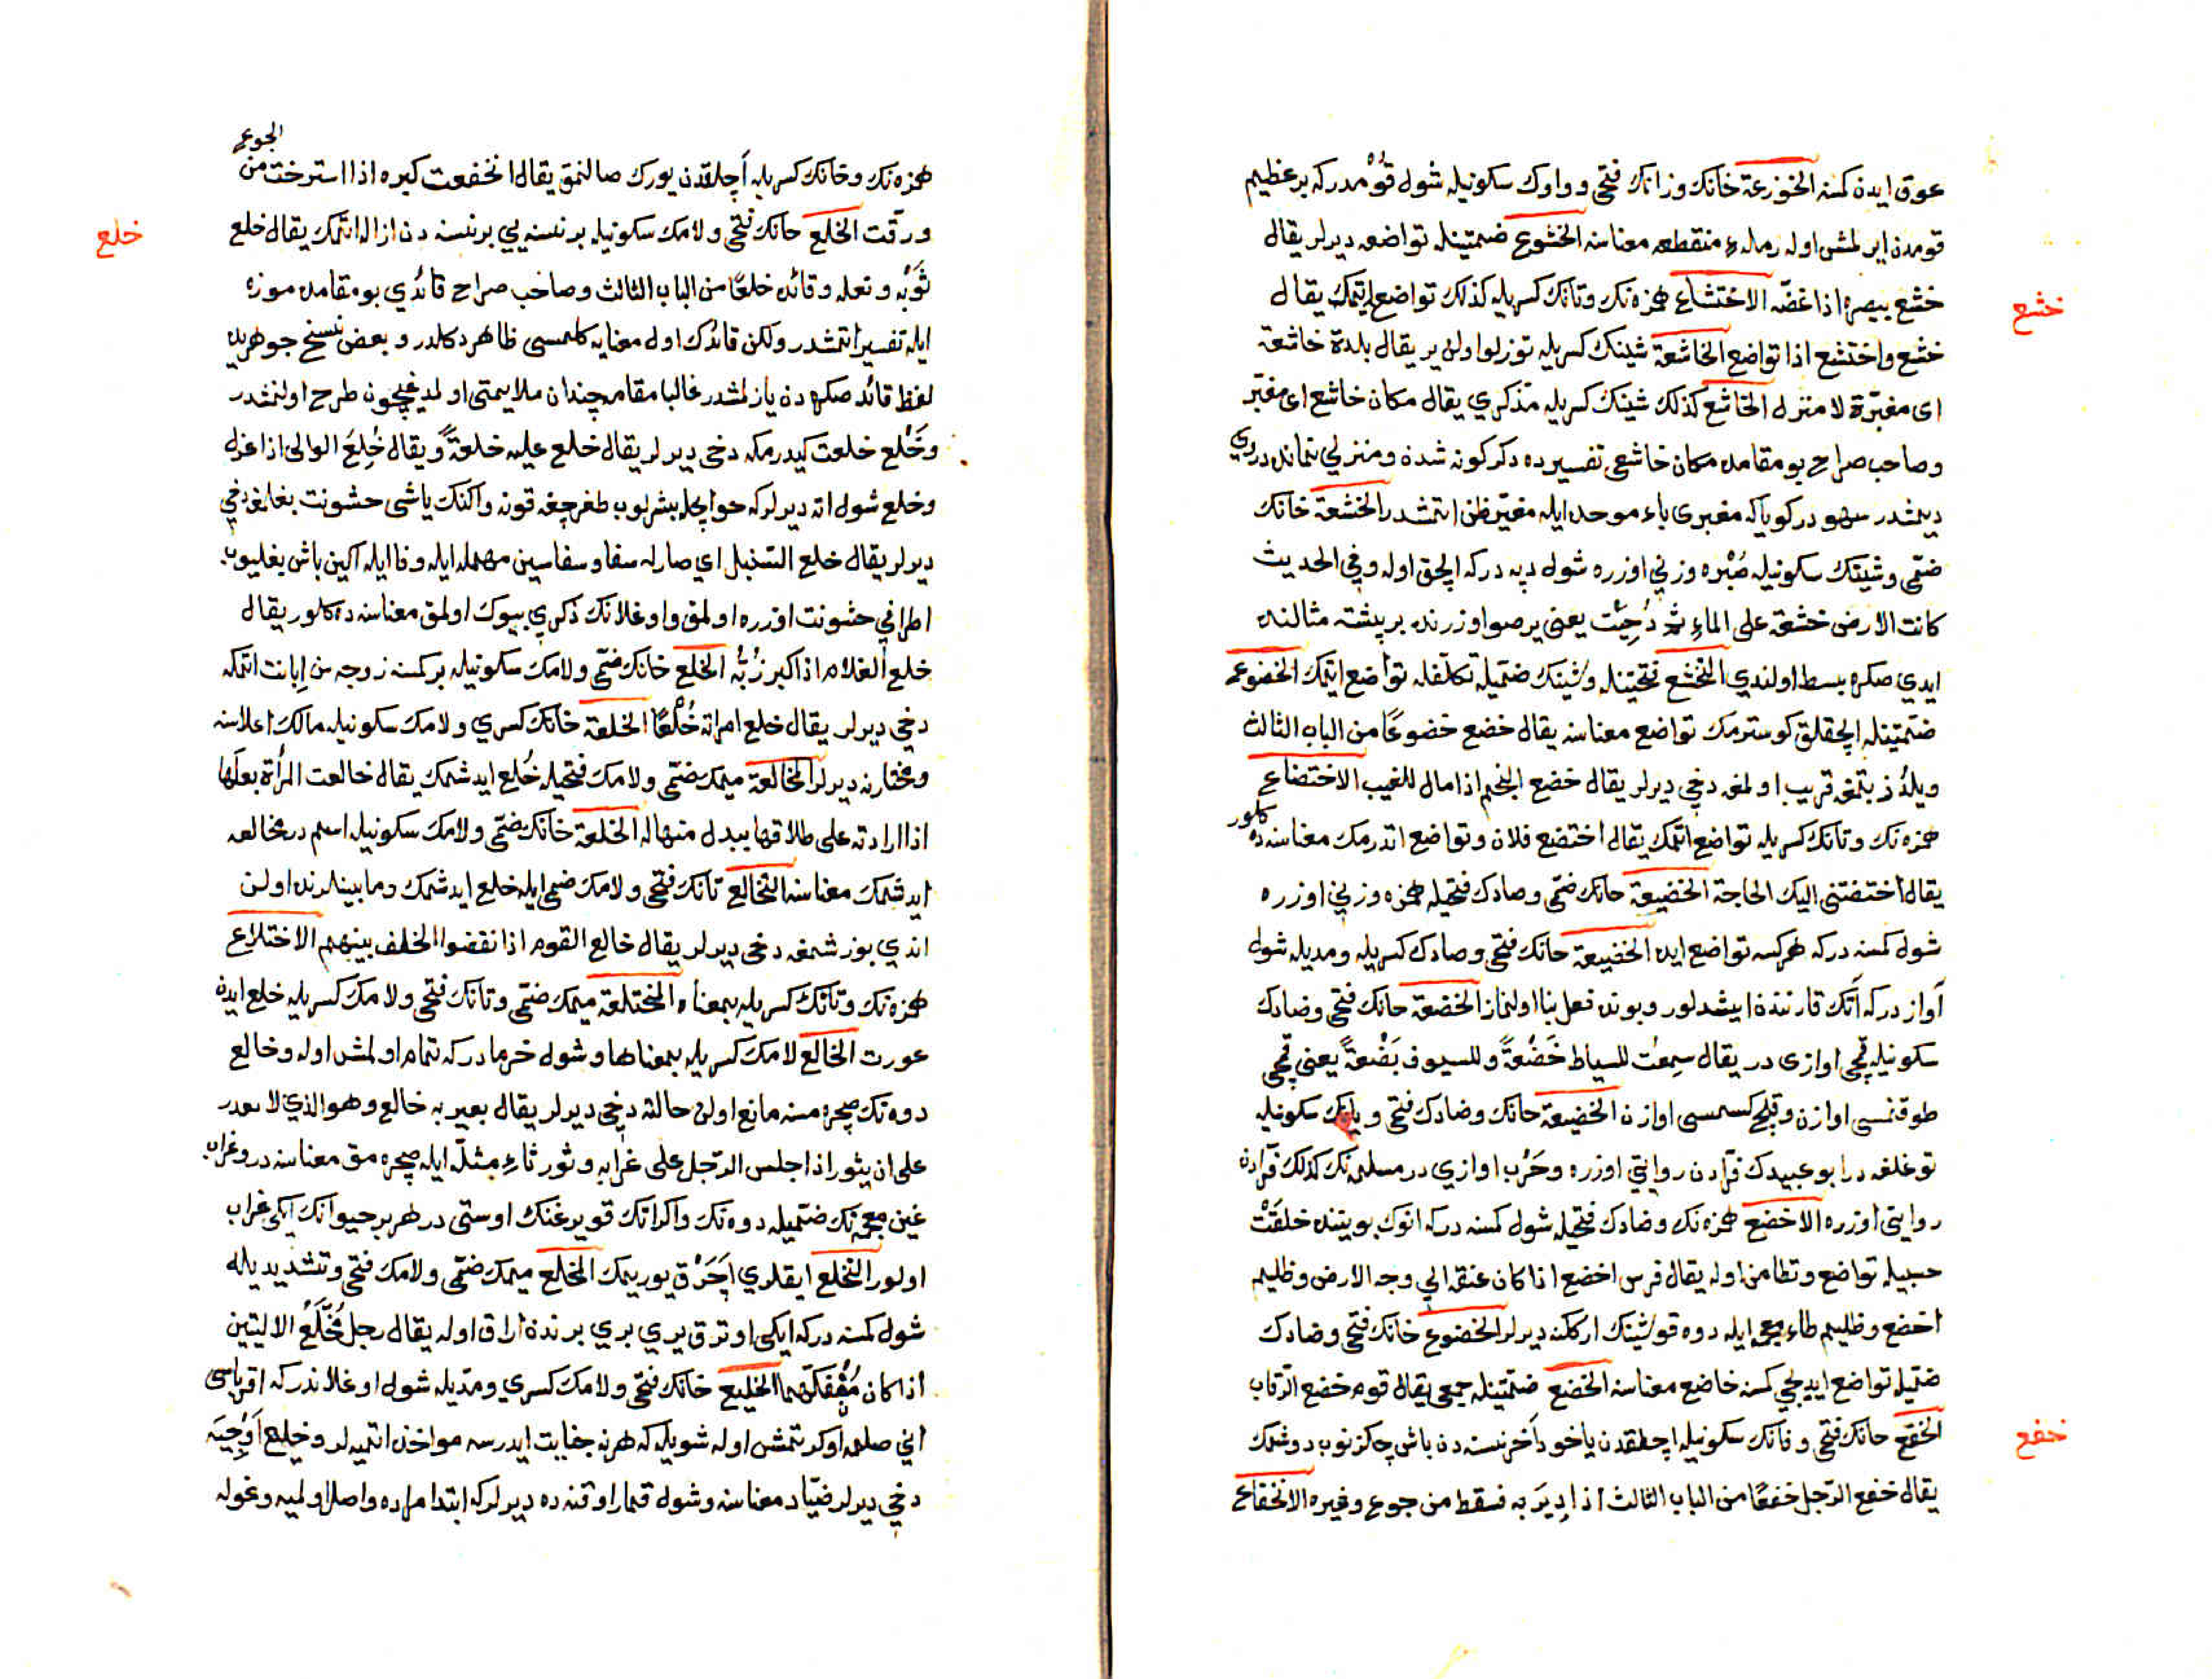 عوق ايدن كسنه الخوزعة خانك وزانك فتحى وواوك سكونيله شول قومدركه بر عظيم
قومدن ايرلمش اوله رمله منقطعه معناسنه الخشوع ضمتينله تواضعه ديرلر يقال
خشع
خشع ببصره اذا غضّه الاختشاع همزه نك وتانك كسريله كذلك تواضع ايتمك يقال
خشع واختشع اذا تواضع الخاشعة شينك كسريله توزلو اولن ير يقال بلدة خاشعة
اى مغبرّة لا منزل الخاشع كذلك شينك كسريله مذكرى يقال مكان خاشع اى مغبّر
وصاحب صراح بو مقامده مكان خاشعى تفسيرده دكركونه شده ومنزلى نمانده در دى
ديمشدر سهودر كويا كه مغبرى باء موحده ايله مغيّر ظن ايتمشدر الخشعة خانك
ضمّى وشينك سكونيله صُبْره وزنى اوزره شول دپه دركه الچق اوله وفى الحديث
كانت الارض خشعة على الماء ثم دُحِيَت يعنى ير صو اوزرنده بر پشته مثالنده
ايدى صكره بسط اولندى التخشع فتحتينله وشينك ضميله تكلفله تواضع ايتمك الخضوع
ضمتينله الچقلق كوسترمك تواضع معناسنه يقال خضع خضوعًا من الباب الثالث
ويلدز بتمغه قريب اولمغه دخى ديرلر يقال خضع النجم اذا مال للغيب الاختضاع
همزه نك وتانك كسريله تواضع اتمك يقال اختضع فلان وتواضع اتدرمك معناسنه ده كلور
يقال اختضعتنى اليك الحاجة الخضعة خانك ضمّى وضادك فتحيله همزه وزنى اوزره
شول كسنه دركه هر كسه تواضع ايده الخضيعة خانك فتحى وضادك كسريله ومديله شول
آواز دركه آتك قارننده ايشدلور وبوندن فعل بنا اولنماز الخضعة خانك فتحى وضادك
سكونيله قمچى اوازى در يقال سمعت للسياط خَضْعةً وللسيوف بَضْعةً يعنى قمچى
طوقنمسى اوازن وقلج كسمسى اوازن الخضيعة خانك وضادك فتحى ويانك سكونيله
توغلغه در ابو عبيدك فرّادن روايتى اوزره وحَرْب اوازى در مسلمه نك كذلك فرّادن
روايتى اوزره الاخضع همزه نك وضادك فتحيله شول كسنه دركه انوك بويننده خلقَتْ
حسبيله تواضع وتطامن اوله يقال فرس اخضع اذا كان عنقه الى وجه الارض وظليم
اخضع وظليم ظاء معجمه ايله دوه قوشينك اركنه ديرلر الخضوع خانك فتحى وضادك
ضميله تواضع ايديجى كسنه خاضع معناسنه الخضع ضمتينله جمعى يقال قوم خضع الرّقاب
خفع
الخفع خانك فتحى وفانك سكونيله اچلقدن ياخود آخر نسنه دن باش چكزنوب دوشمك
يقال خفع الرّجل خفعًا من الباب الثالث اذا دِيرَ به فسقط من جوع وغيره الانخفاع
همزه نك وخانك كسريله آچلقدن يورك صالنمق يقال انخفعت كبده اذا استرخت من الجوع
خلع
ورقت الخلع خانك فتحى ولامك سكونيله بر نسنه يى بر نسنه دن ازاله اتمك يقال خلع
ثَوْبه ونعله وقائده خلعًا من الباب الثالث وصاحب صراح قائدى بو مقامده موزه
ايله تفسير اتمشدر ولكن قائدك اول معنايه كلمسى ظاهر دكلدر وبعض نسخ جوهريده
لفظ قائد صكره دن يازلمشدر غالبا مقامه چندان ملايمتى اولمديغيچون طرح اولنمشدر
وخَلْع خلعت كيدرمكه دخى ديرلر يقال خلع عليه خلعةً ويقال خُلِعَ الوالى اذا عزل
وخلع شول اته ديرلركه حوا‌يجله بشرلوب طغرجغه قونه واكنك باشى خشونت بغلمغه دخى
ديرلر يقال خلع السنبل اى صار له سفا وسفا سين مهمله ايله وفا ايله اكين باش بغليوب
اطرافى خشونت اوزره اولمق واوغلانك ذكرى بيوك اولمق معناسنه ده كلور يقال
خلع الغلام اذا كبر زُبُّه الخلع خانك ضمّى ولامك سكونيله بر كسنه زوجه سن ابانت اتمكه
دخى ديرلر يقال خلع امراته خُلْعًا الخلعة خانك كسرى ولامك سكونيله مالك اعلاسنه
ومختارينه ديرلر المخالعة ميمك ضمّى ولامك فتحيله خُلع ايدشمك يقال خالعت المرأة بعلها
اذا ارادته على طلاقها ببدل منها له الخلعة خانك ضمّى ولامك سكونيله اسم در مخالعه
ايدشمك معناسنه التخالع تانك فتحى ولامك ضمى ايله خلع ايدشمك ومابينلرنده اولن
اندى بوزشمغه دخى ديرلر يقال تخالع القوم اذا نقضوا الحلف بينهم الاختلاع
همزه نك وتانك كسريله بمعناه المختلعة ميمك ضمّى وتانك فتحى ولامك كسريله خلع ايدن
عورت الخالع لامك كسريله بمعناها وشول خرما دركه تمام اولمش اوله وخالع
دوه نك صچره مسنه مانع اولن حالته دخى ديرلر يقال بعير به خالع وهو الذى لا يقدر
على ان يثور اذا جلس الرّجل على غرابه وثور ثاء مثلثه ايله صچره مق معناسنه در وغراب
غين معجمه نك ضميله دوه نك واكرانك قويرغنك اوستى در هر بر حيوانك ايكى غراب
اولور التخلع ايقلرى آچَرَق يوريمك المخلع ميمك ضمّى ولامك فتحى وتشديديله
شول كسنه دركه ايكى اوترق يرى برى برندن ارق اوله يقال رجل مُخَلَّعُ الاليتين
اذا كان مُنْفَكَّهما الخليع خانك فتحى ولامك كسرى ومديله شول اوغلاندركه اقرباسى
انى صلمه اوكرتمش اوله شويله كه هر نه جنايت ايدرسه مواخذه اتميه لر وخليع آوجيَه
دخى ديرلر صيّاد معناسنه وشول قمار اوقنه ده ديرلركه ابتدا مراده واصل اولميه وغوله